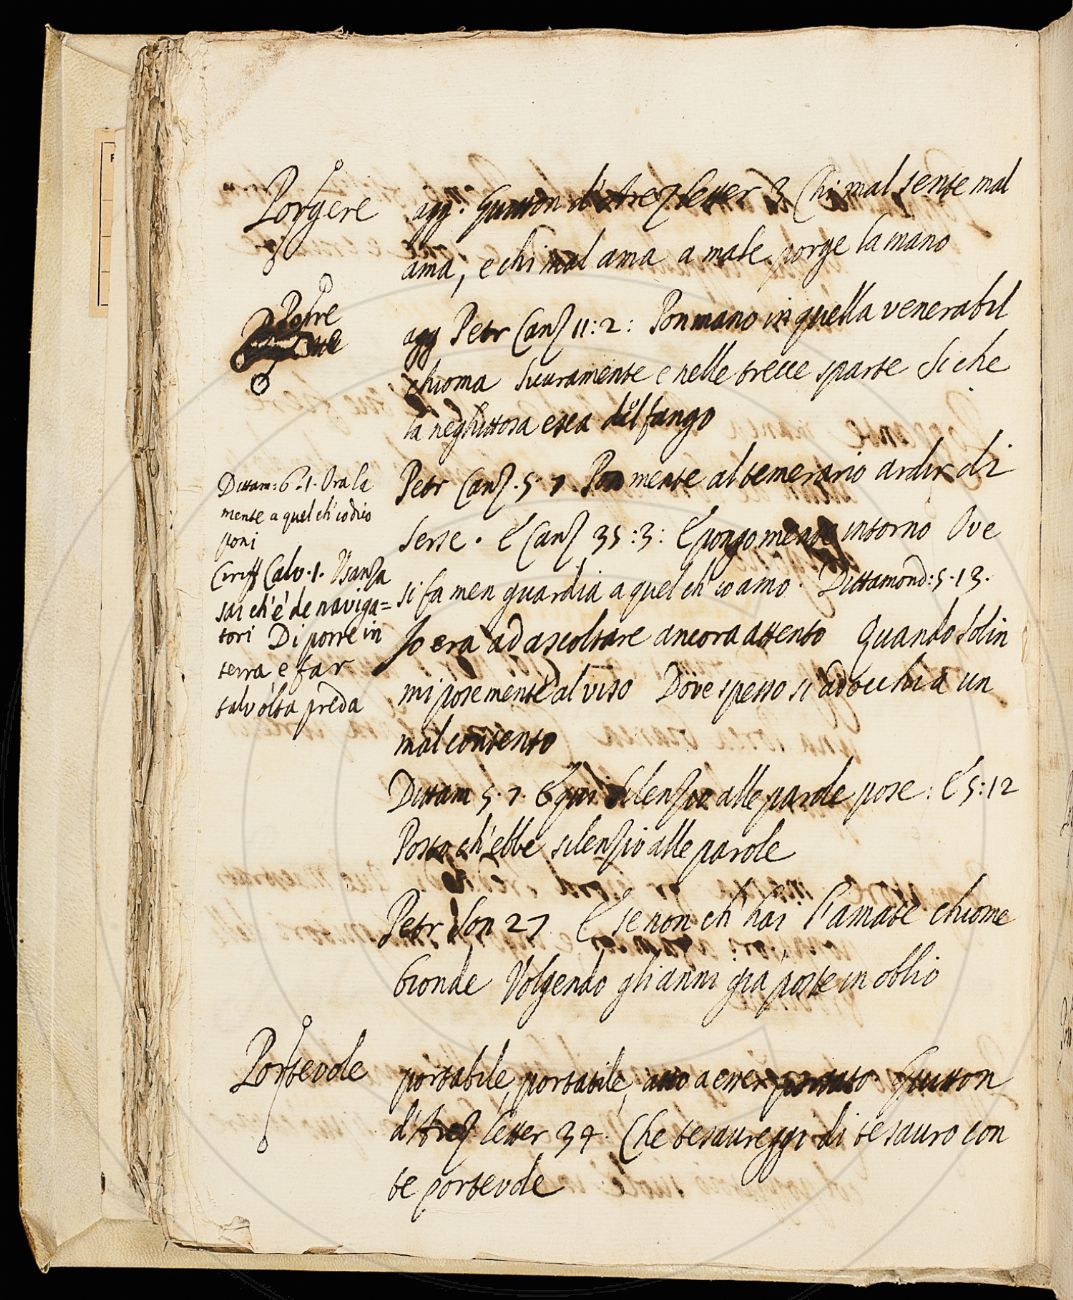 Porgere agg. Guitton d'Arez. letter 3 Chi mal sente mal
ama, e chi mal ama a male porge la mano
Porre agg Petr Canz 11:2: Pon mano in quella venerabil
chioma Sicuramente e nelle trecce sparte Si che
la neghittosa esca del fango
Petr Canz. 5.7. Pon mente al temerario ardir di
Serse. E Canz 35:3: E pongo mente intorno Ove
si fa men guardia a quel ch'io amo. Dittamond: 5.13.
Io era ad ascoltare ancora attento Quando Solin
mi pose mente al viso Dove spesso si adocchia un
mal contento
Dittam 5.7. E qui silenzio alle parole pose: E 5:12
Posto ch'ebbe silenzio alle parole
Petr Son 27. E se non ch'hai l'amate chiome
bionde Volgendo gli anni gia poste in oblio
Dittam: 6.1. Ora la
mente a quel ch'io dico
poni
Ciriff Calv. 1. Usanza
sai ch'é de naviga=
tori Di porre in
terra e far
talvolta preda
Portevole portabile, portatile, atto a esser portato Guitton
d'Arez letter 34. Che tesaureggi di tesauro con
te portevole